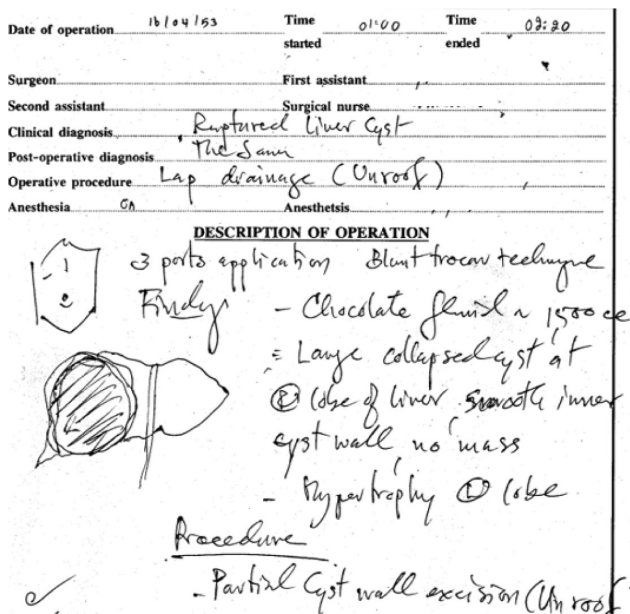 Date of operation 16/04/53 Time started 01:00 Time ended 02:20
Surgeon First assistant
Second assistant Surgical nurse
Clinical diagnosis Ruptured Liver Cyst
Post-operative diagnosis The Same
Operative procedure Lap drainage (Unroof)
Anesthesia GA Anesthetsis
DESCRIPTION OF OPERATION
3 ports application Blunt trocar technique
Findings
- Chocolate fluid ~ 1500 cc
= Large collapsed cyst at
Ⓡ lobe of liver smooth inner
cyst wall, no mass
- Hypertrophy Ⓛ lobe
Procedure
- Partial Cyst wall excision (Unroof